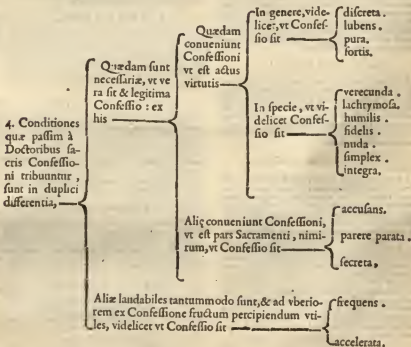 4. Conditiones
quæ passim à
Doctoribus sa-
cris Confessio-
ni tribuuntur,
sunt in duplici
differentia,
Quædam sunt
necessariæ, vt ve
ra sit & legitima
Confessio : ex
his
Quædam
conueniunt
Confessioni
vt est actus
virtutis
In genere, vide-
licet, vt Confes-
sio sit
discreta.
lubens.
pura.
fortis.
In specie, vt vi-
delicet Confes-
sio sit
verecunda.
lachrymosa.
humilis.
fidelis.
nuda.
simplex.
integra.
Aliç conueniunt Confessioni,
vt est pars Sacramenti, nimi-
rum, vt Confessio sit
accusans.
parere parata.
secreta,
Aliæ laudabiles tantummodo sunt, & ad vberio-
rem ex Confessione fructum percipiendum vti-
les, videlicet vt Confessio sit
frequens.
accelerata.